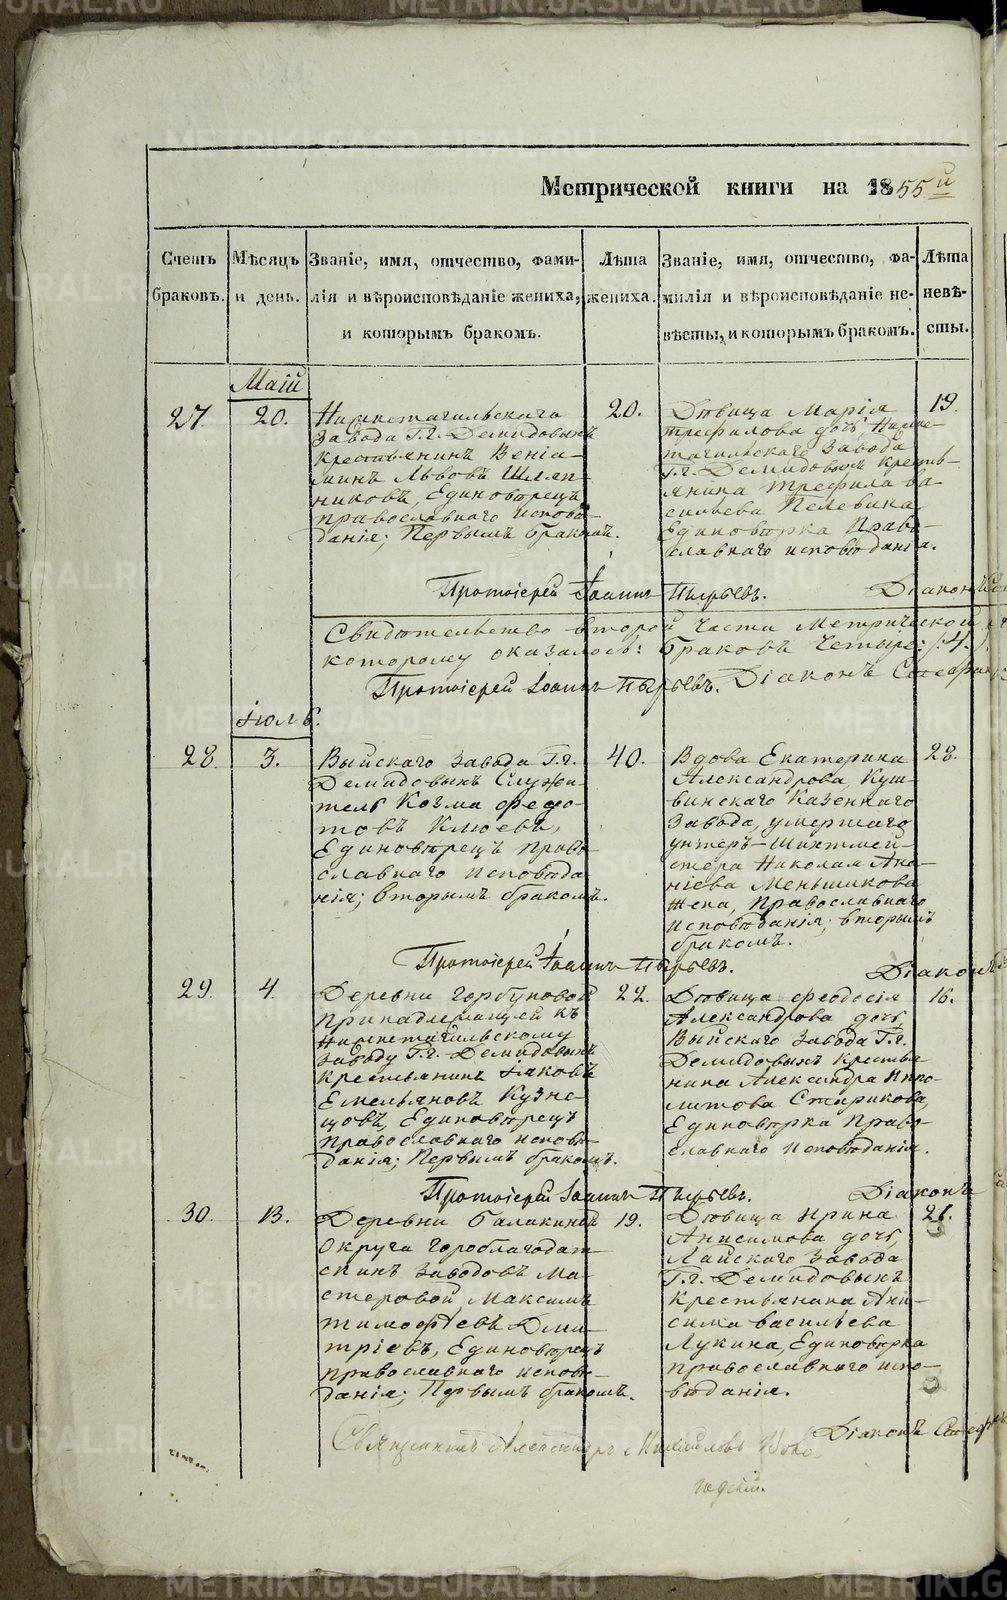 Метрической книги на 1855й
Счетъ браковъ.
Мѣсяцъ и день.
Званіе, имя, отчество, фами-
лія и вѣроисповѣданіе жениха,
и которымъ бракомъ.
Лѣта
жениха.
Званіе, имя, отчество, фа-
милія и вѣроисповѣданіе не-
вѣсты, и которымъ бракомъ.
Лѣта
невѣ-
сты.
Маій
27.
20.
Нижнетагильскаго
Завода Г.г. Демидовыхъ
крестьянинъ Веніа-
минъ Львовъ Шляп-
никовъ, Единовѣрецъ
православнаго исповѣ-
данія; Первымъ бракомъ.
20.
Дѣвица Марія
Трефилова дочь, Нижне-
тагильскаго Завода
Г.г. Демидовыхъ кресть-
янина Трефила Ва-
сильева Пелевина
Единовѣрка Право-
славнаго исповѣданія.
19.
Протоіерей Іоаннъ Пырьевъ. Діаконъ
Свидѣтельство второй части Метрической
которому оказалось: браковъ четыре: /:4.:/
Протоіерей Іоаннъ Пырьевъ. Діаконъ
Іюль.
28.
3.
Выйскаго Завода Г.г.
Демидовыхъ Служи-
тель Козма Федо-
товъ Клюевъ,
Единовѣрецъ право-
славнаго исповѣда-
нія; вторымъ бракомъ.
40.
Вдова Екатерина
Александрова, Куш-
винскаго Казеннаго
Завода, умершаго
унтеръ-Шихтмей-
стера Николая Ана-
ніева Меньшикова
жена, Православнаго
исповѣданія; вторымъ
бракомъ.
28.
Протоіерей Іоаннъ Пырьевъ. Діаконъ
29.
4.
Деревни Горбуновой
принадлежащей къ
Нижнетагильскому
Заводу Г.г. Демидовыхъ
крестьянинъ Іаковъ
Емельяновъ Кузне-
цовъ, Единовѣрецъ
православнаго исповѣ-
данія; Первымъ бракомъ.
22.
Дѣвица Феодосія
Александрова дочь
Выйскаго Завода Г.г.
Демидовыхъ крестья-
нина Александра Иппо-
литова Старикова,
Единовѣрка Право-
славнаго исповѣданія.
16.
Протоіерей Іоаннъ Пырьевъ. Діаконъ
30.
13.
Деревни Балакиной
Округа Гороблагодат-
скихъ Заводовъ Ма-
стеровой, Максимъ
Тимофѣевъ Дми-
тріевъ, Единовѣрецъ
православнаго исповѣ-
данія; Первымъ бракомъ.
19.
Дѣвица Ирина
Анисимова дочь,
Лайскаго Завода
Г.г. Демидовыхъ
крестьянина Ани-
сима Васильева
Лукина, Единовѣрка
православнаго испо-
вѣданія.
21.
Діаконъ
Священникъ Александръ Михайловъ
METRIKI.GASO-URAL.RU